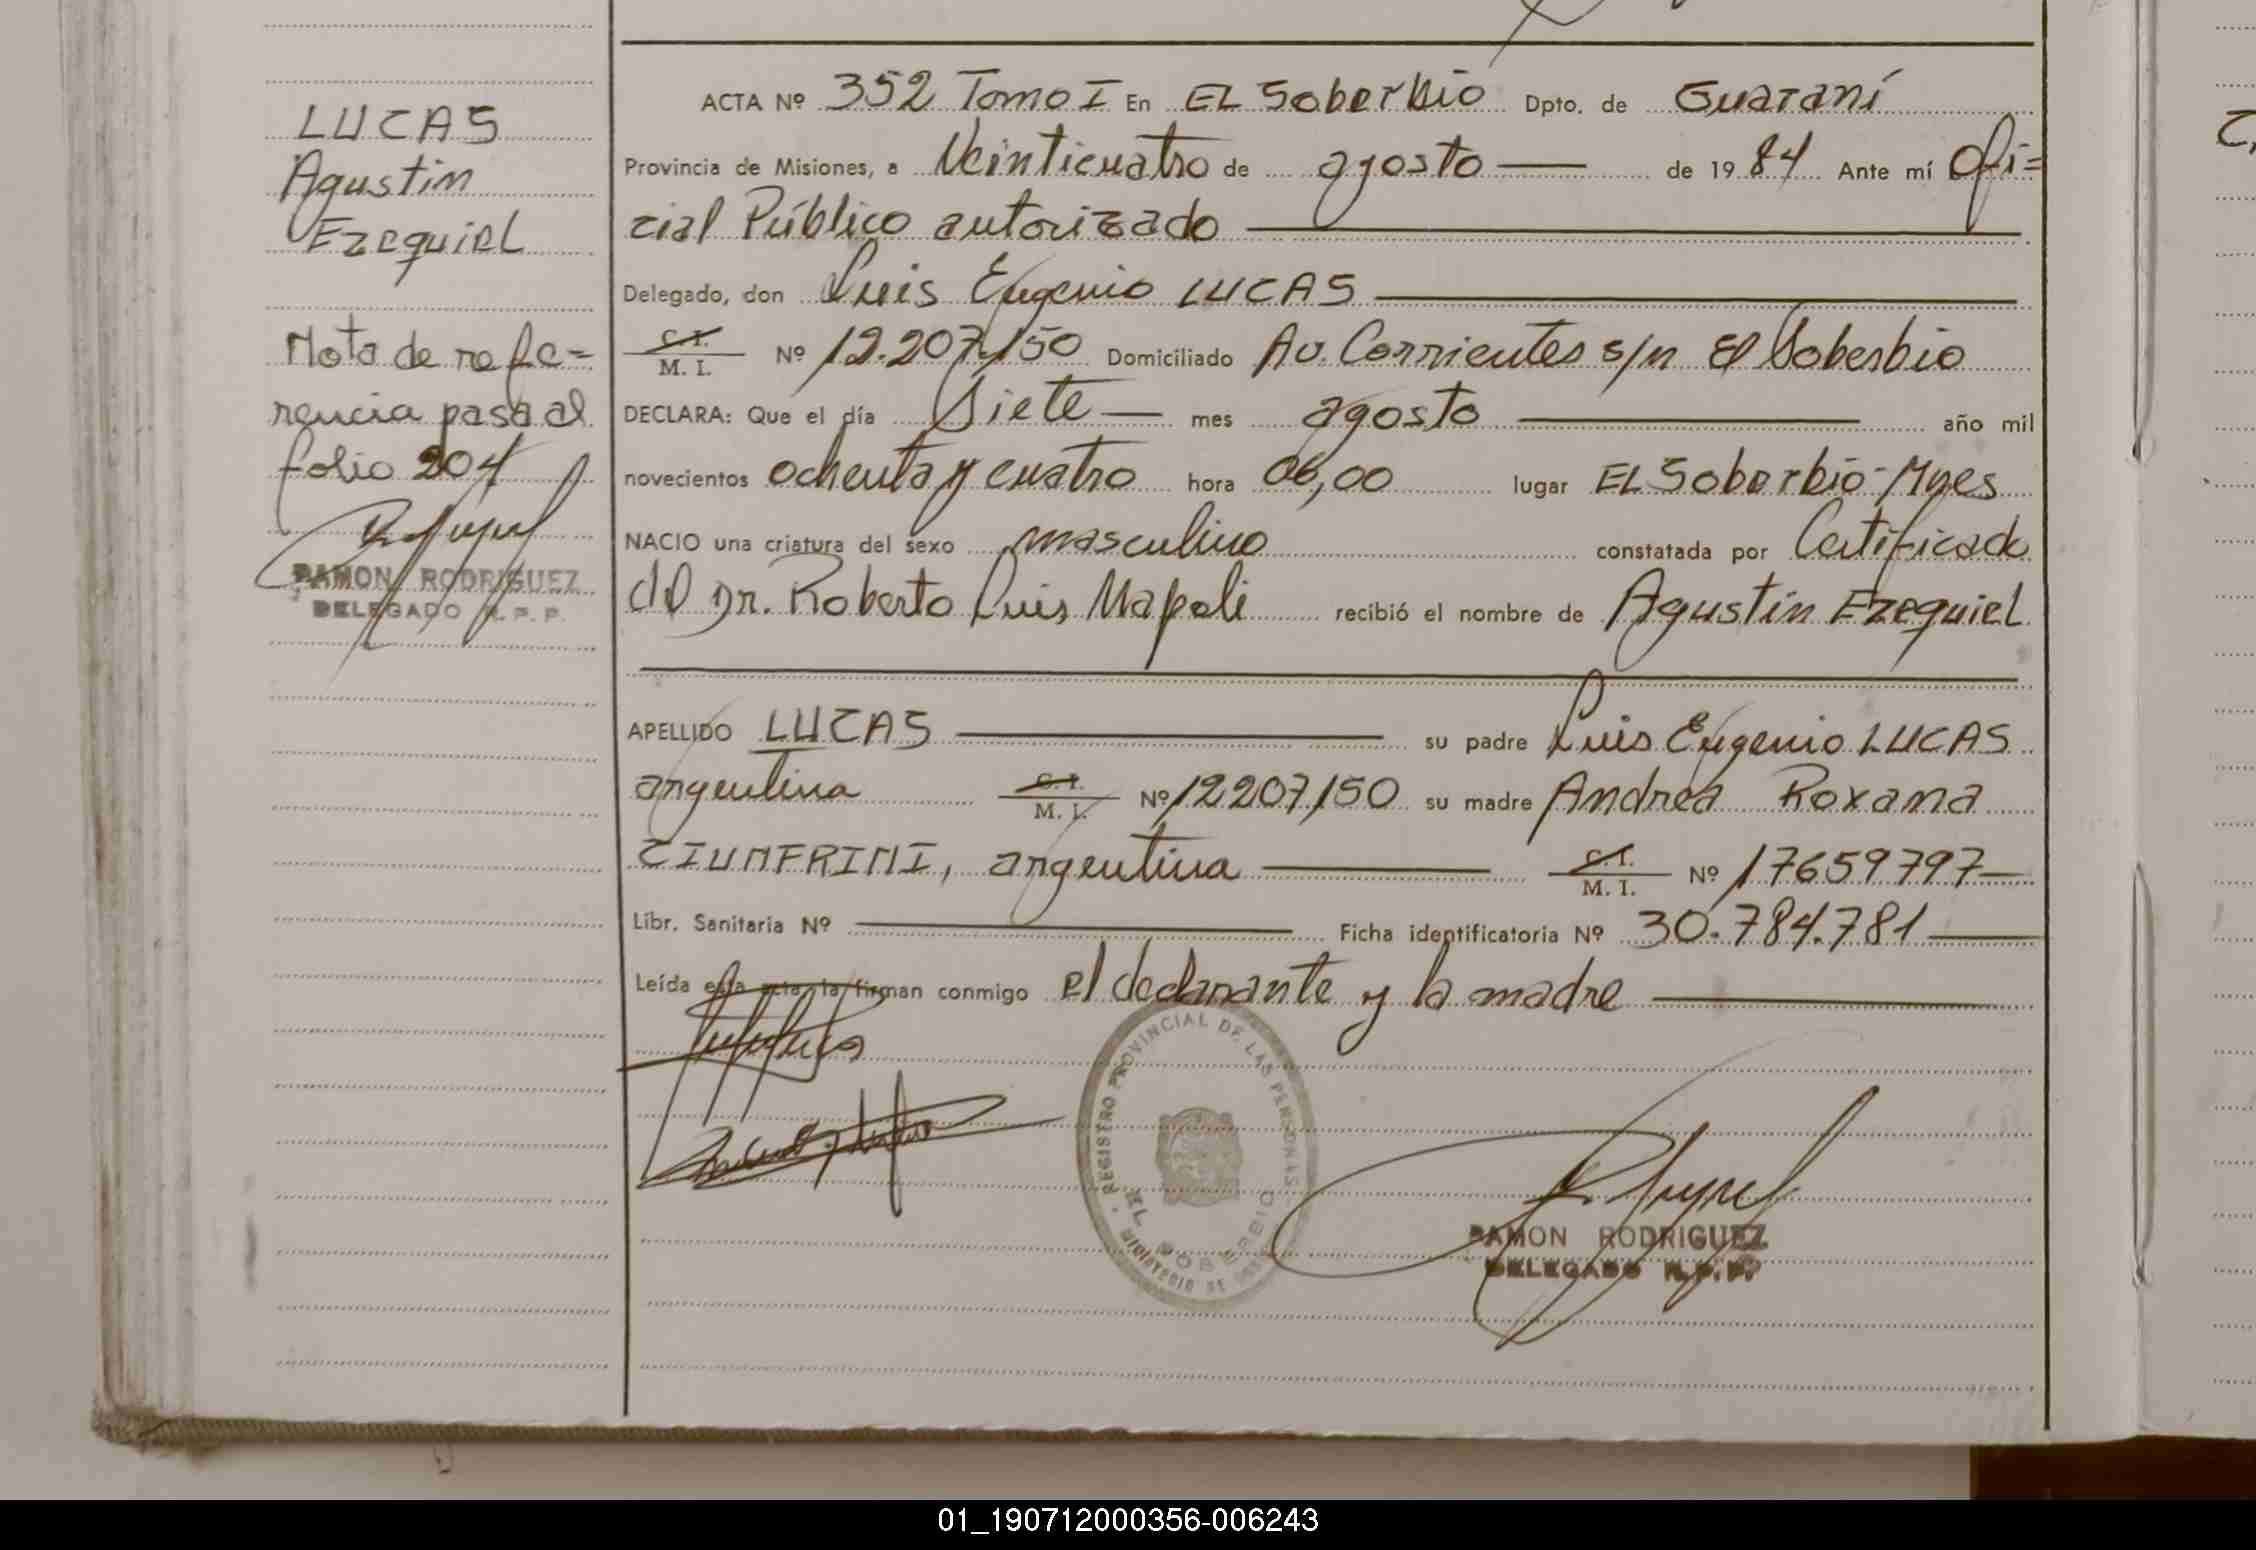 LUCAS
Agustin
Ezequiel
Nota de refe=
rencia pasa al
folio 204
RAMON RODRIGUEZ
DELEGADO R. P. P.
ACTA Nº 352 Tomo I En EL Soberbio Dpto. de Guaraní
Provincia de Misiones, a Veinticuatro de agosto — de 1984 Ante mí Ofi=
cial Público autorizado
Delegado, don Luis Eugenio LUCAS
C. I.
M. I. Nº 12.207.150 Domiciliado Av. Corrientes s/n El Soberbio
DECLARA: Que el día Siete — mes agosto — año mil
novecientos ochenta y cuatro hora 06,00 lugar EL Soberbio - Mnes
NACIO una criatura del sexo masculino constatada por Certificado
del Dr. Roberto Luis Napoli recibió el nombre de Agustín Ezequiel
APELLIDO LUCAS — su padre Luis Eugenio LUCAS
argentina C. I. M. I. Nº 12207150 su madre Andrea Roxana
CIUNFRINI, argentina — C. I. M. I. Nº 17659797—
Libr. Sanitaria Nº — Ficha identificatoria Nº 30.784.781 —
Leída esta acta la firman conmigo el declarante y la madre —
REGISTRO PROVINCIAL DE LAS PERSONAS
EL SOBERBIO
MINISTERIO DE
RAMON RODRIGUEZ
DELEGADO R. P. P.
01_190712000356-006243